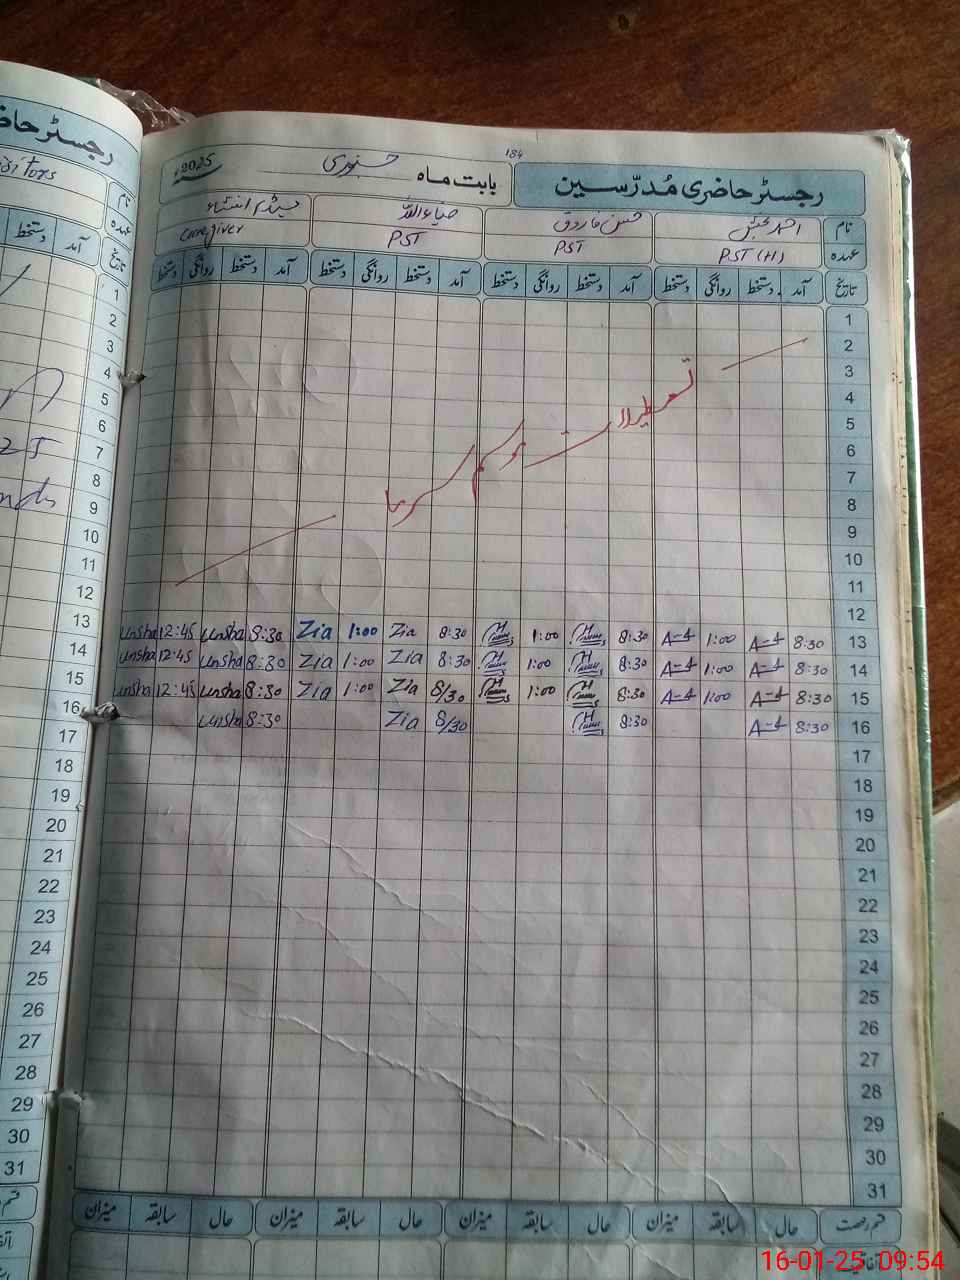 رجسٹر حاضری
sitors
نام
عہدہ
دستخط آمد تاریخ
1
2
3
4
5
6
7
8
9
10
11
12
13
14
15
16
17
18
19
20
21
22
23
24
25
26
27
28
29
30
31
184
رجسٹر حاضری مُدرّسین بابت ماہ جنوری 2025
نام حسن فاروق ضیاء اللہ
عہدہ PST (H) PST PST Caregiver
تاریخ آمد دستخط روانگی دستخط آمد دستخط روانگی دستخط آمد دستخط روانگی دستخط آمد دستخط روانگی دستخط
1
2
3
4
5
6
7
8
9
10
11
12
تعطیلات موسم سرما
Unsha 12:45 Unsha 8:30 Zia 1:00 Zia 8:30 1:00 8:30 1:00 8:30 13
Unsha 12:45 Unsha 8:30 Zia 1:00 Zia 8:30 1:00 8:30 1:00 8:30 14
Unsha 12:45 Unsha 8:30 Zia 1:00 Zia 8/30 1:00 8:30 1:00 8:30 15
Unsha 8:30 Zia 8/30 8:30 8:30 16
17
18
19
20
21
22
23
24
25
26
27
28
29
30
31
قسم رخصت حال سابقہ میزان حال سابقہ میزان حال سابقہ میزان حال سابقہ میزان
اتفاقیہ
16-01-25 09:54